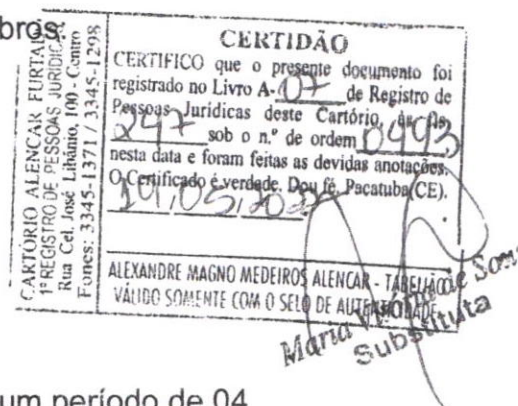 bros.
CARTÓRIO ALENCAR FURTADO
1º REGISTRO DE PESSOAS JURIDICAS
Rua Cel. José Libânio, 100 - Centro
Fones: 3345-1371 / 3345-1298
CERTIDÃO
CERTIFICO que o presente documento foi
registrado no Livro A-07 de Registro de
Pessoas Juridicas deste Cartório, às fls.
247 sob o n.º de ordem 0493
nesta data e foram feitas as devidas anotações.
O Certificado é verdade. Dou fé. Pacatuba(CE).
14,05,20
ALEXANDRE MAGNO MEDEIROS ALENCAR - TABELIÃO
VÁLIDO SOMENTE COM O SELO DE AUTENTICIDADE
Maria de
Substituta
um período de 04